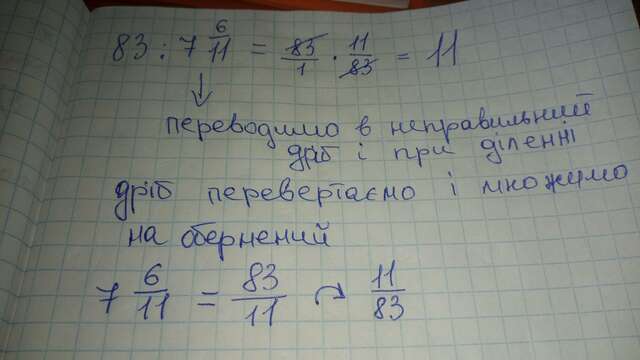 83 : 7 6/11 = 83/1 · 11/83 = 11
↓
переводимо в неправильний
дріб і при діленні
дріб перевертаємо і множимо
на обернений
7 6/11 = 83/11 ↷ 11/83